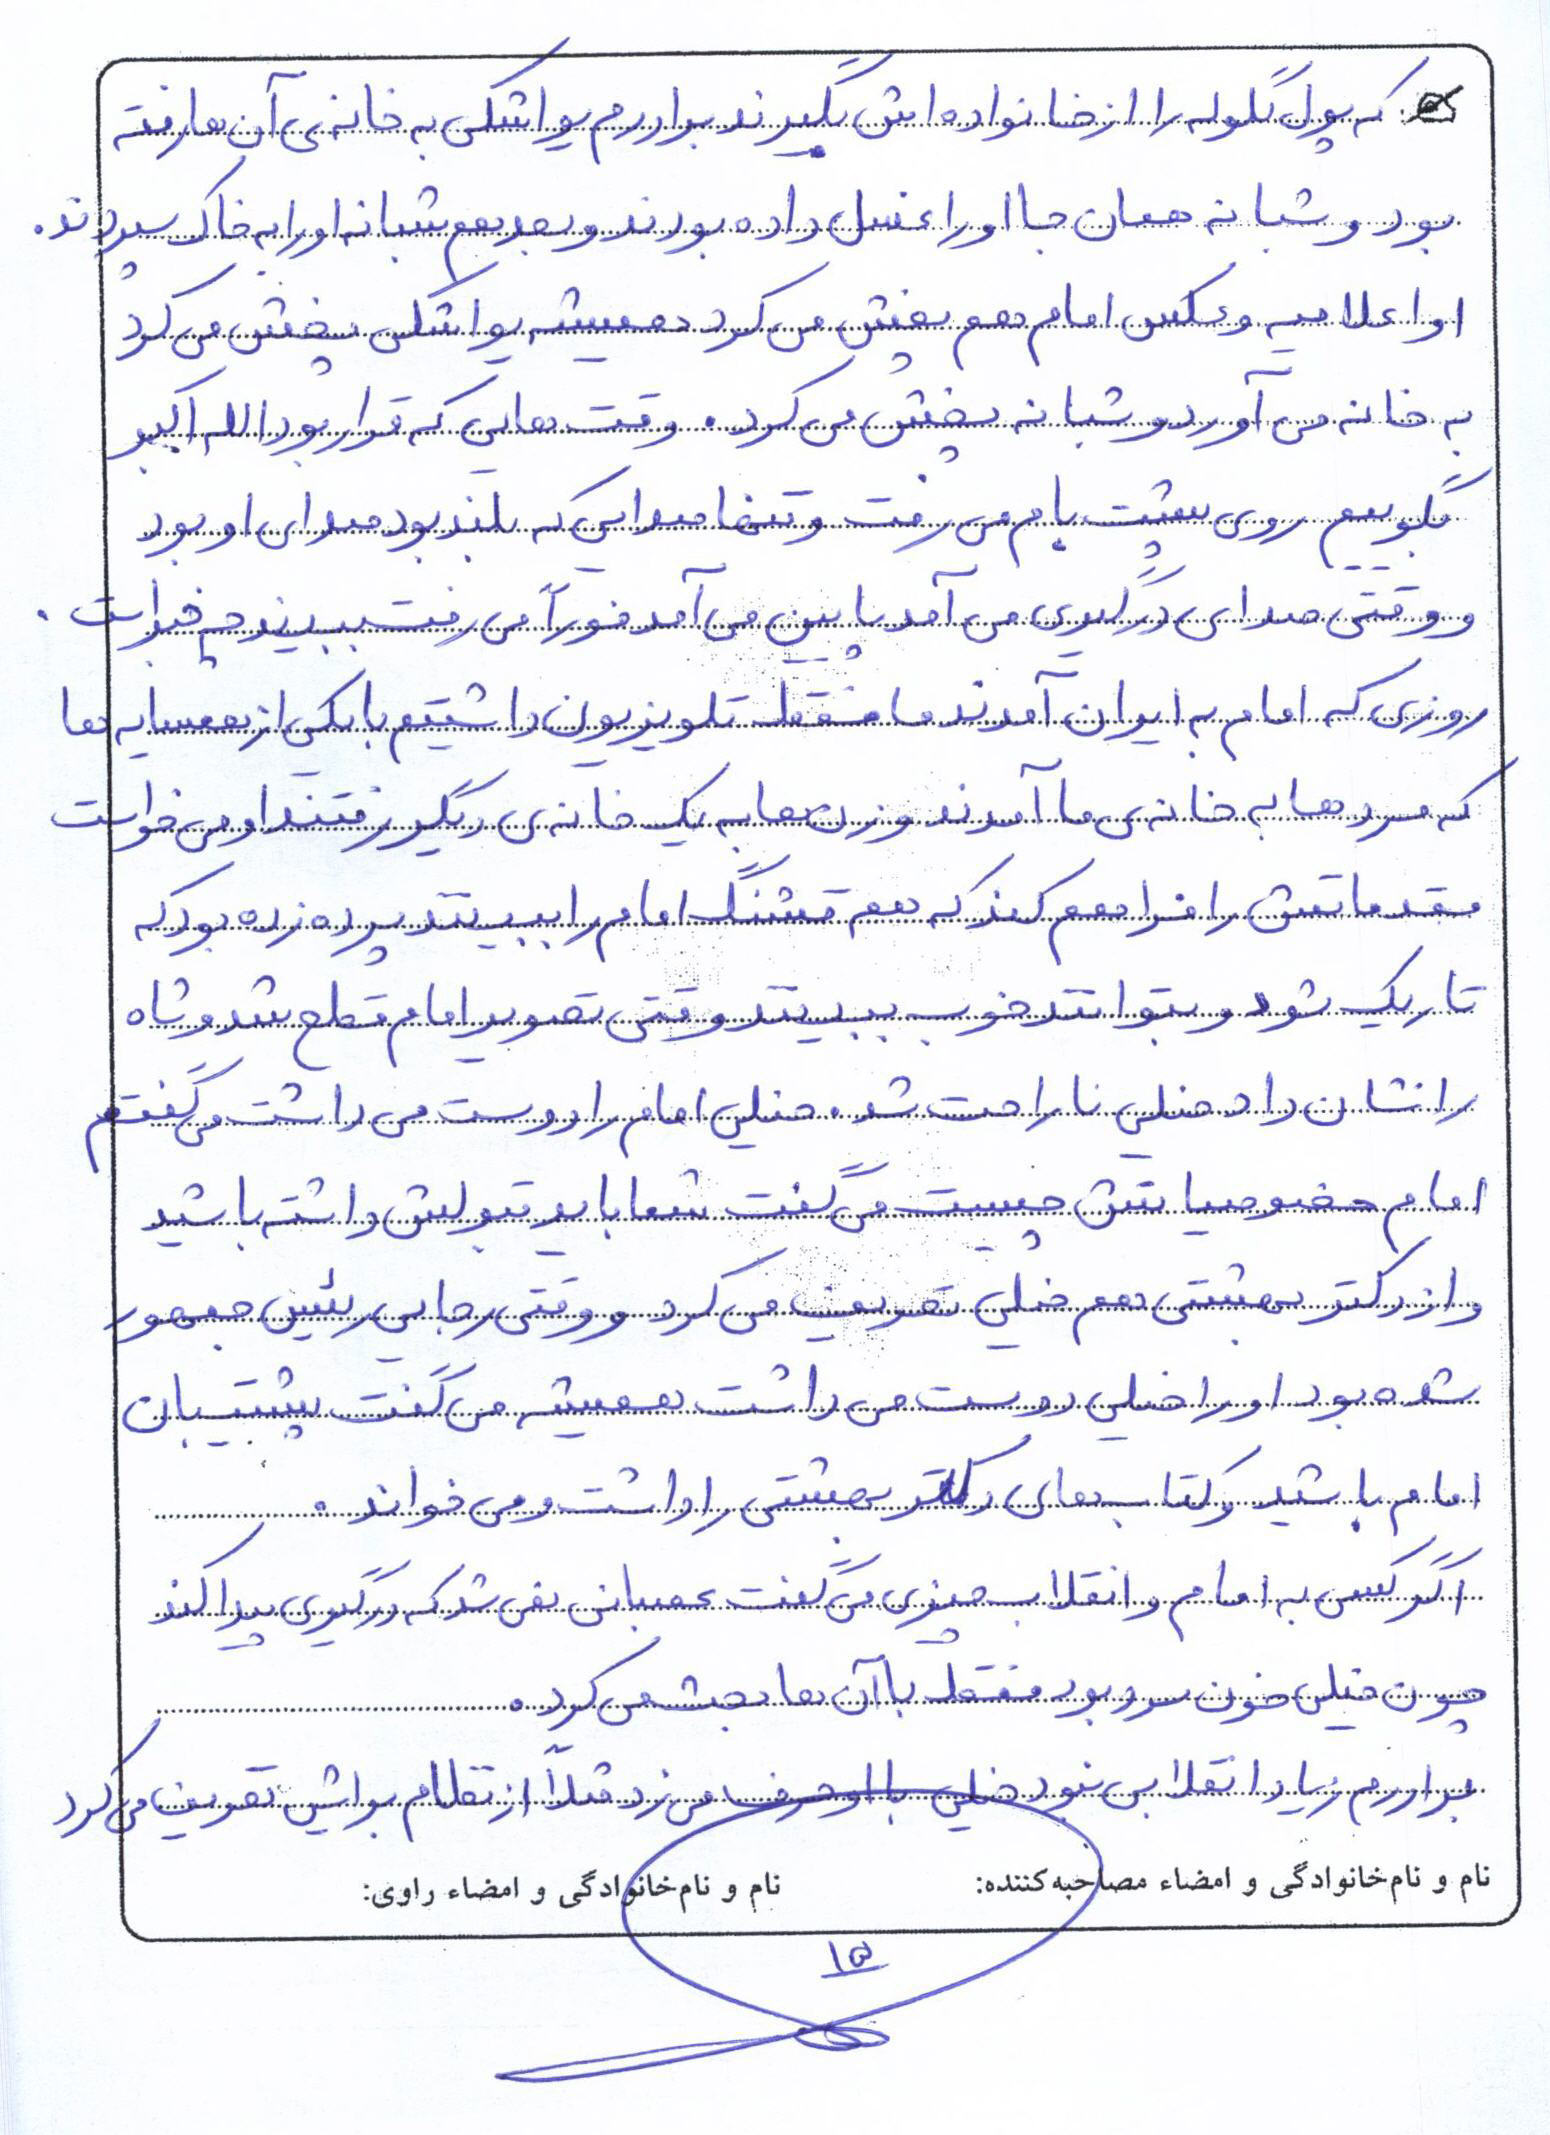 که پول گلوله را از خانواده اش بگیرند برادرم یواشکی به خانه ی آن ها رفته
بود و شبانه همان جا او را غسل داده بودند و بعد هم شبانه او را به خاک سپردند.
او اعلامیه و عکس امام هم پخش می کرد همیشه یواشکی پخش می کرد
به خانه می آورد و شبانه پخش می کرد. وقت هایی که قرار بود الله اکبر
بگوییم روی پشت بام می رفت و تنها صدایی که بلند بود صدای او بود
و وقتی صدای درگیری می آمد پایین می آمد فوراً می رفت ببیند چه خبر است.
روزی که امام به ایران آمدند ما فقط تلویزیون داشتیم با یکی از همسایه ها
که مردها به خانه ی ما آمدند و زن ها به یک خانه ی دیگر رفتند او می خواست
مقدماتش را فراهم کند که هم قشنگ امام را ببینند پرده زده بود که
تاریک شود و بتوانند خوب ببینند وقتی تصویر امام قطع شد و شاه
را نشان داد خیلی ناراحت شد. خیلی امام را دوست می داشت می گفتم
امام خصوصیاتش چیست می گفت شما باید قبولش داشته باشید
و از دکتر بهشتی هم خیلی تعریف می کرد و وقتی رجایی رئیس جمهور
شده بود او را خیلی دوست می داشت همیشه می گفت پشتیبان
امام باشید و کتاب های دکتر بهشتی را داشت و می خواند.
اگر کسی به امام و انقلاب چیزی می گفت عصبانی نمی شد که درگیری پیدا کند
چون خیلی خون سرد بود فقط با آن ها بحث می کرد.
برادرم زیاد انقلابی نبود خیلی با او حرف می زد مثلاً از نظام برایش تعریف می کرد
نام و نام‌خانوادگی و امضاء مصاحبه‌کننده: نام و نام‌خانوادگی و امضاء راوی:
۱۵